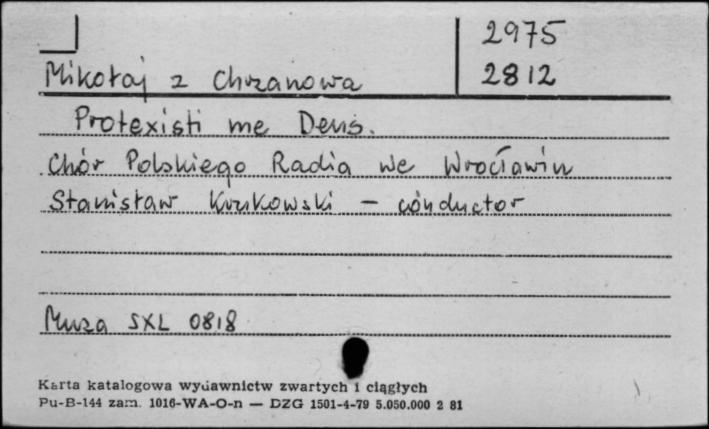 2975
2812
Mikołaj z Chrzanowa
Protexisti me Deus.
Chór Polskiego Radia we Wrocławiu
Stanisław Krukowski – conductor
Muza SXL 0818
Karta katalogowa wydawnictw zwartych i ciągłych
Pu-B-144 zam. 1016-WA-O-n — DZG 1501-4-79 5.050.000 2 81